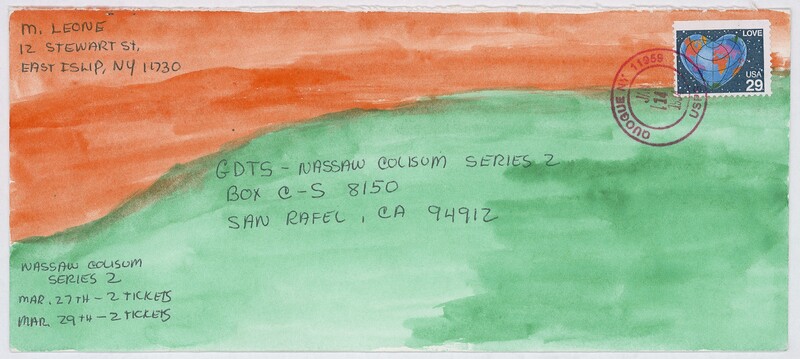 M. LEONE
12 STEWART St,
EAST ISLIP, NY 11730
LOVE
USA
29
QUOGUE NY 11959
14
USPS
GDTS - NASSAW COLISUM SERIES 2
BOX C-S 8150
SAN RAFEL, CA 94912
NASSAW COLISUM
SERIES 2
MAR. 27TH - 2 TICKETS
MAR. 29TH - 2 TICKETS